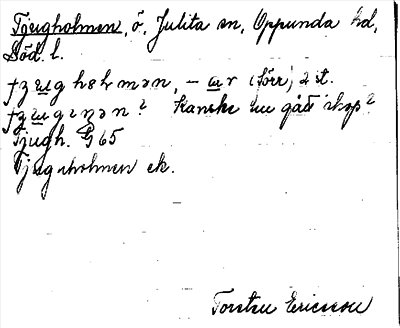 Tjugholmen, ö, Julita sn, Oppunda hd,
Söd. l.
– (förr; 2 st.
Kanske nu gått ihop?
Tjugh. G 65
Tjugholmen ek.
Torsten Ericsson